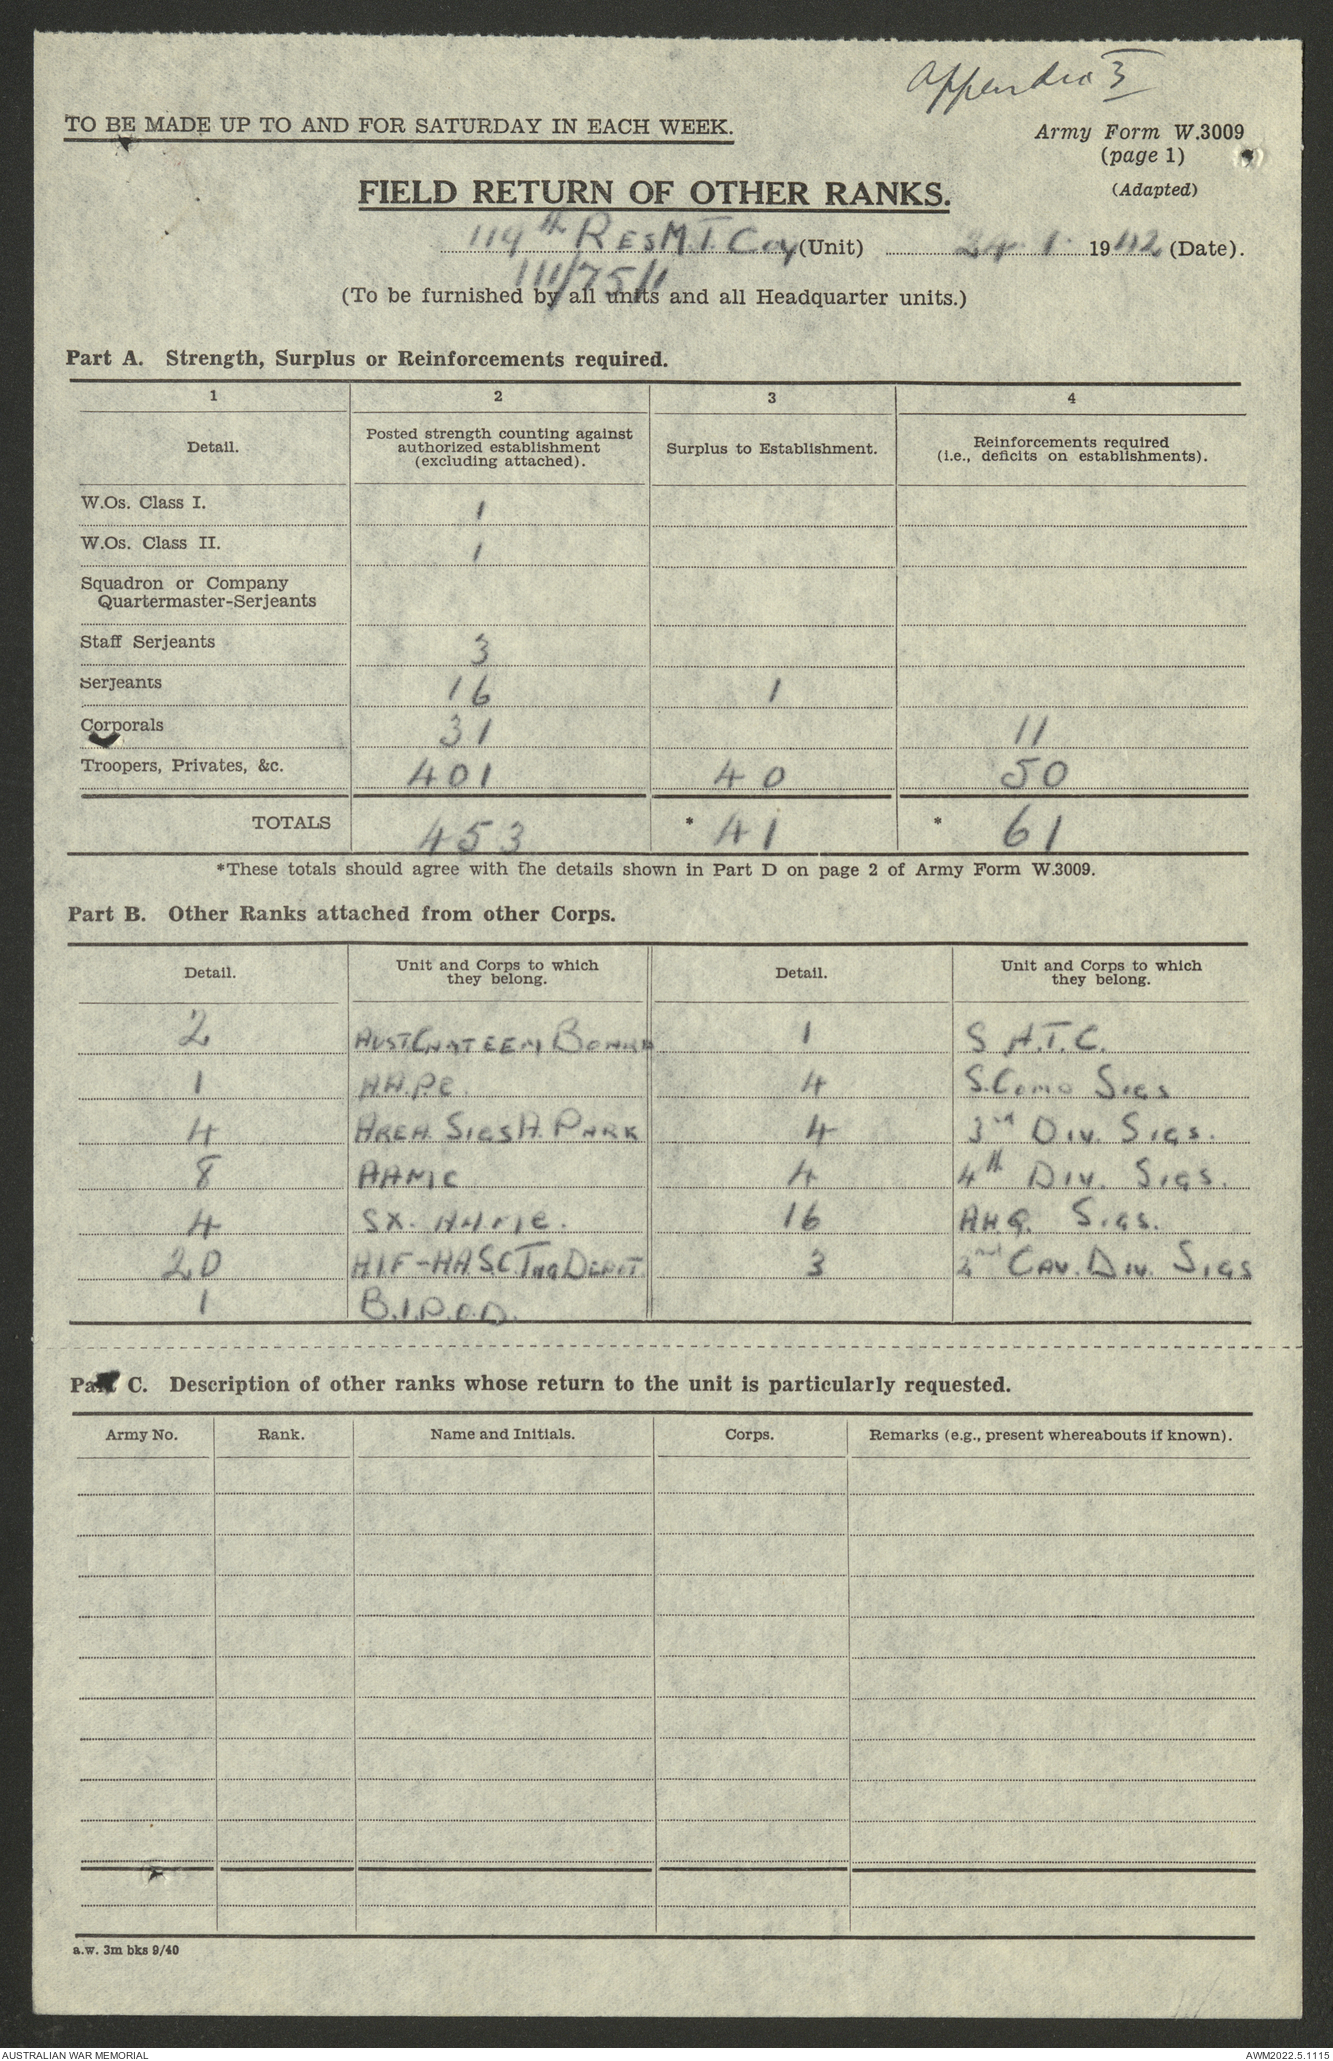 Appendix 3
TO BE MADE UP TO AND FOR SATURDAY IN EACH WEEK.
Army Form W.3009
(page 1)
(Adapted)
FIELD RETURN OF OTHER RANKS.
119th Res M.T. Coy (Unit) 24.1.1942 (Date).
111/75/1
(To be furnished by all units and all Headquarter units.)
Part A. Strength, Surplus or Reinforcements required.
1 2 3 4
Detail. Posted strength counting against authorized establishment (excluding attached). Surplus to Establishment. Reinforcements required (i.e., deficits on establishments).
W.Os. Class I. 1
W.Os. Class II. 1
Squadron or Company
Quartermaster-Serjeants
Staff Serjeants 3
Serjeants 16 1
Corporals 31 11
Troopers, Privates, &c. 401 40 50
TOTALS 453 * 41 * 61
*These totals should agree with the details shown in Part D on page 2 of Army Form W.3009.
Part B. Other Ranks attached from other Corps.
Detail. Unit and Corps to which they belong. Detail. Unit and Corps to which they belong.
2 Aust Canteen Board 1 S.A.T.C.
1 AAPC. 4 S. Comd Sigs
4 Area Sigs A. Park 4 3rd Div. Sigs.
8 AAMC 4 4th Div. Sigs.
4 SX. 16 AHQ. Sigs.
20 AIF-AASC Tng Depot. 3 2nd Cav. Div. Sigs
1 B.I.P.O.D.
Part C. Description of other ranks whose return to the unit is particularly requested.
Army No. Rank. Name and Initials. Corps. Remarks (e.g., present whereabouts if known).
a.w. 3m bks 9/40
AUSTRALIAN WAR MEMORIAL
AWM2022.5.1115